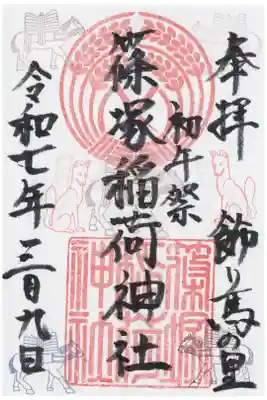 奉拝 飾り馬の里
初午祭
篠塚稲荷神社
令和七年 三月九日
篠塚稲荷神社